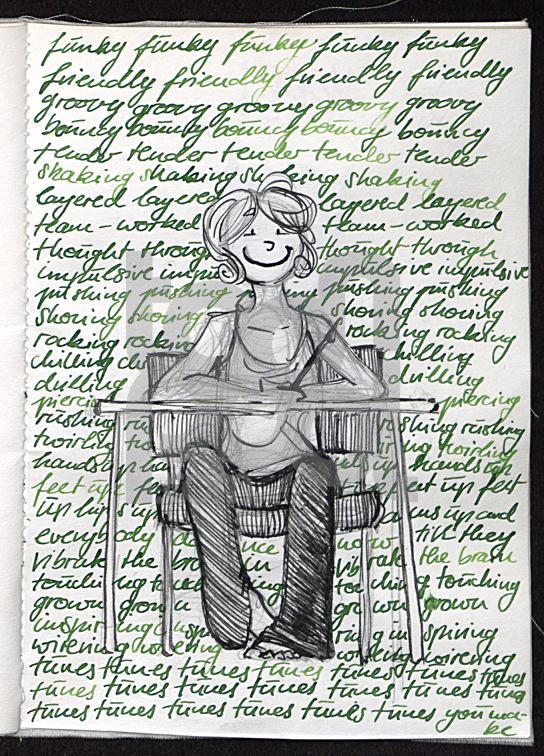 funky funky funky funky funky
friendly friendly friendly friendly
groovy groovy groovy groovy groovy
bouncy bouncy bouncy bouncy bouncy
tender tender tender tender tender
shaking shaking shaking
layered layered layered layered
team-worked team-worked
thought through thought through
impulsive impulsive impulsive
pushing pushing pushing pushing
sharing
rocking rocking rocking
chilling chilling
drilling drilling
piercing
rushing rushing
hands up hands up
feet up feet up feet
up hips up arms up and
everybody dance now till they
vibrate the brain vibrate the brain
touching touching touching
grown grown grown grown
inspiring inspiring
tunes tunes tunes tunes tunes tunes tunes
tunes tunes tunes tunes tunes tunes tunes
tunes tunes tunes tunes tunes tunes you ma-
ke